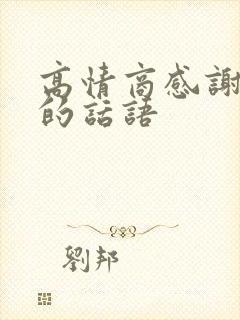 高情商感謝
的話語
劉邦